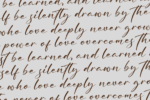 be learned, and learned
lf be silently drawn by the
who love deeply never grow
power of love overcomes the
st be learned, and learned
self be silently drawn by the
who love deeply never grow
power of love overcomes
be learned, and learned